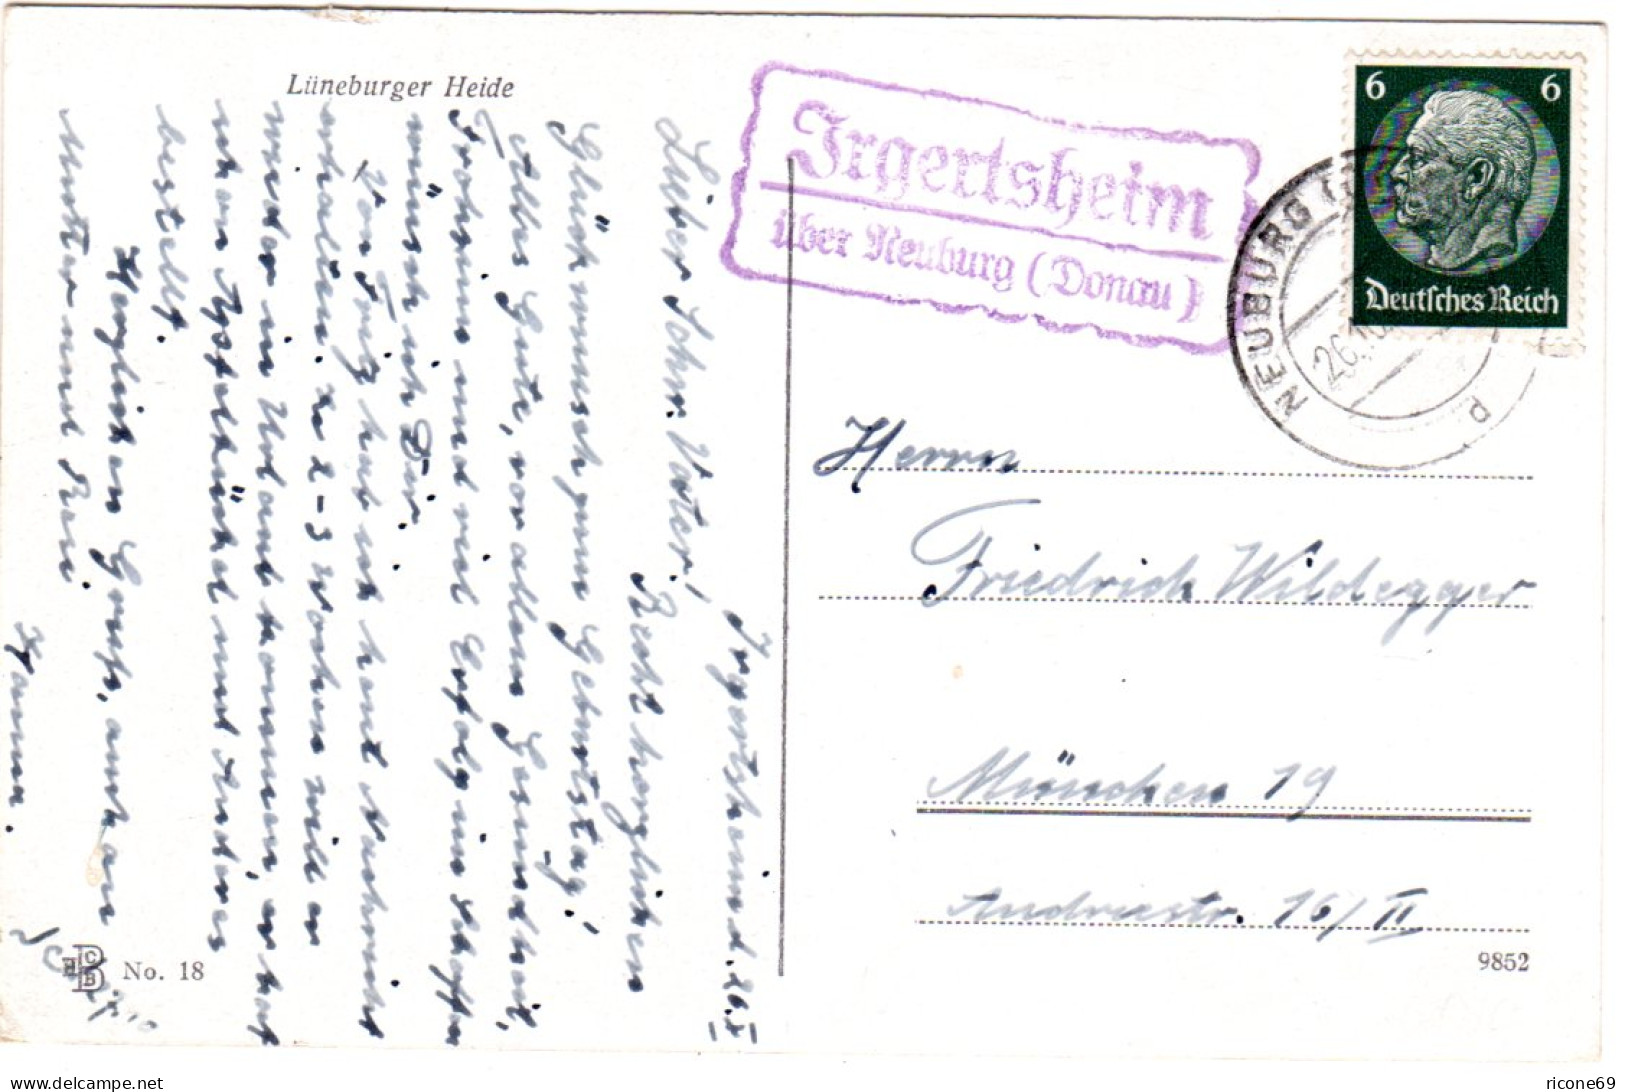 Lüneburger Heide
Irgertsheim
über Neuburg (Donau)
6 6
Deutsches Reich
NEUBURG
26.10.
d
Irgertsheim d. 26.X
Lieber Schw. Vater!
Recht herzlichen
Glückwunsch zum Geburtstag!
Alles Gute, vor allem Gesundheit,
Frohsinn und viel Erfolg im Schaffen
wünsch ich Dir.
Von Fritz hab ich heut Nachricht
erhalten. In 2-3 Wochen will er
wieder in Urlaub kommen, er hat
schon Apfelküchel und Anderes
bestellt.
Herzlichen Gruß, auch an
Mutter und
Hanna.
No. 18
Herrn
Friedrich Wildegger
München 19
Andréestr. 16/II
9852
ricone69